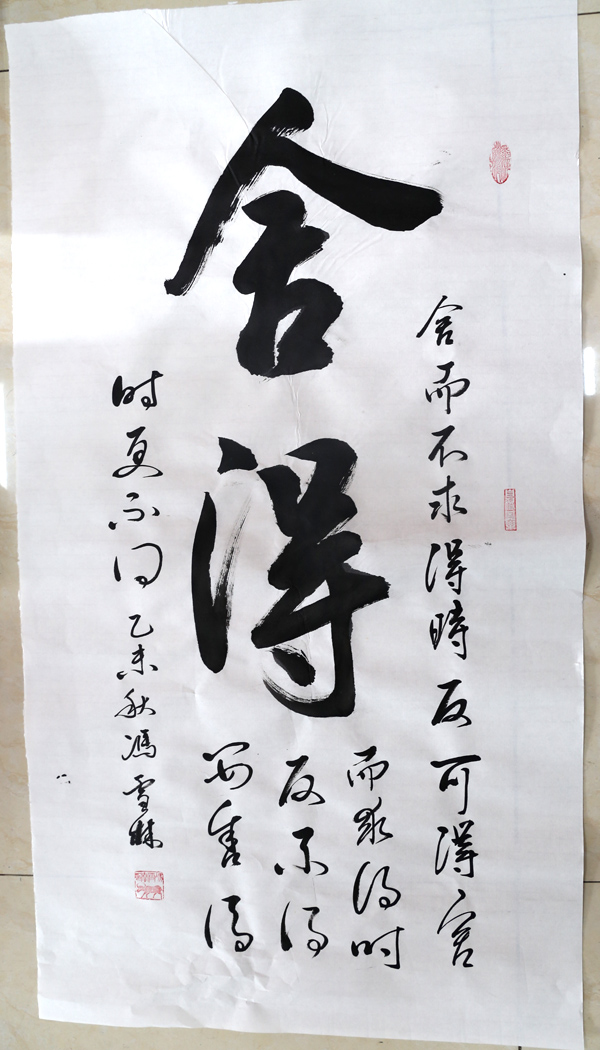 舍得
舍而不求得時反可得舍
而得时
反不得
得
时更不同乙未秋馮雪林